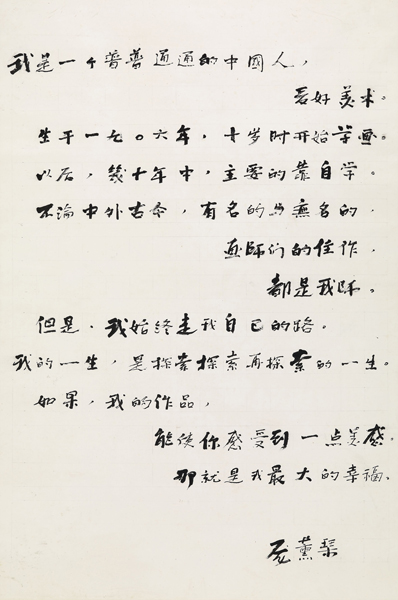 我是一个普普通通的中國人，
爱好美术。
生于一九〇六年，十岁时开始学画。
以后，幾十年中，主要的靠自学。
不論中外古今，有名的与無名的，
画師们的佳作，
都是我師。
但是，我始终走我自己的路。
我的一生，是探索探索再探索的一生。
如果，我的作品，
能使你感受到一点美感，
那就是我最大的幸福。
庞薰琹